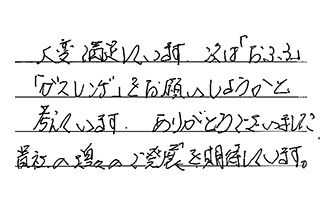 大変満足しています。次は「おふろ」
「ガスレンジ」をお願いしようかと
考えています。ありがとうございました。
貴社の増々のご発展を期待しています。